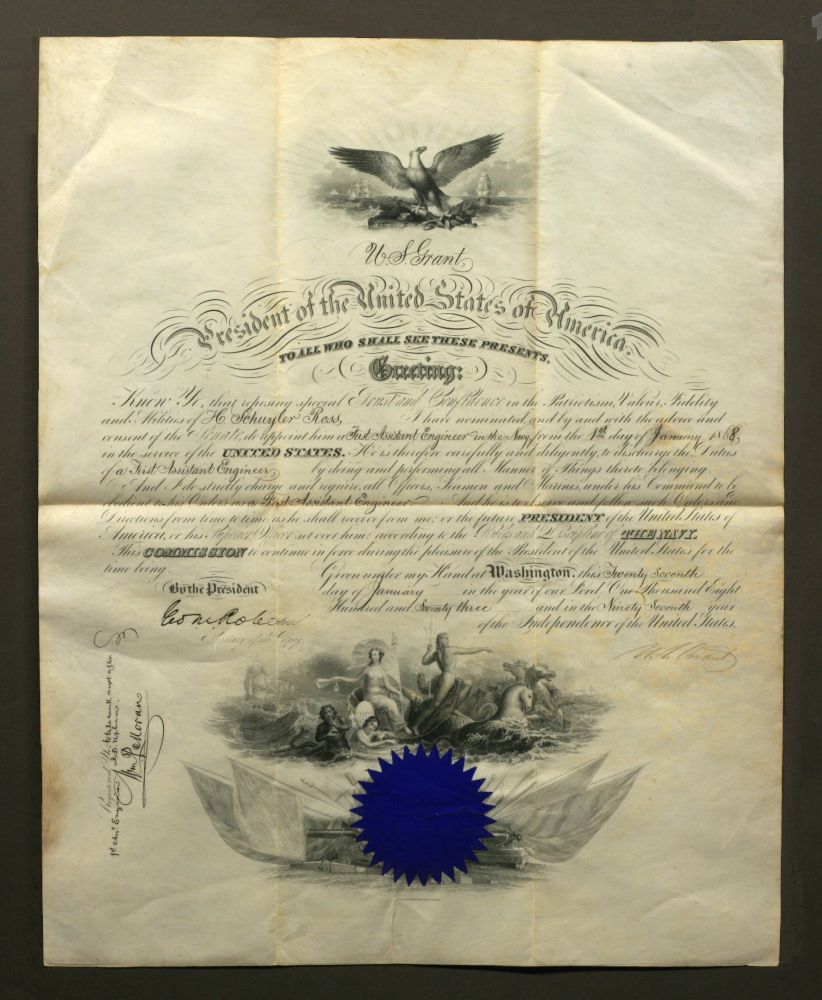 U.S. Grant,
President of the United States of America.
TO ALL WHO SHALL SEE THESE PRESENTS,
Greeting:
Know Ye, that reposing special Trust and Confidence in the Patriotism, Valour, Fidelity
and Abilities of H. Schuyler Ross, I have nominated and by and with the advice and
consent of the Senate, do appoint him a First Assistant Engineer in the Navy from the 1st day of January 1868,
in the service of the UNITED STATES. He is therefore carefully and diligently to discharge the Duties
of a First Assistant Engineer, by doing and performing all Manner of Things thereto belonging.
And I do strictly charge and require all Officers, Seamen and Marines under his Command to be
obedient to his Orders as a First Assistant Engineer And he is to observe and follow such Orders and
Directions from time to time as he shall receive from me, or the future PRESIDENT of the United States of
America, or his Superior Officer set over him, according to the Rules and Discipline of THE NAVY.
This COMMISSION to continue in force during the pleasure of the President of the United States for the
time being.
Given under my Hand at Washington, this Twenty Seventh
By the President
day of January in the year of our Lord One Thousand Eight
Hundred and Seventy three and in the Ninety Seventh year
Geo M Robeson
of the Independence of the United States.
Secretary of the Navy.
U.S. Grant
Registered No.
Wm P Moran